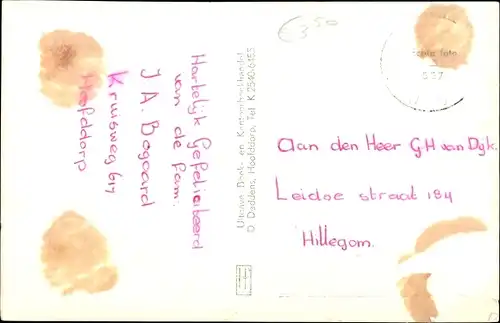 Hartelijk Gefeliciteerd
van de Fam.
J A. Bogaard
Kruisweg 617
Hoofddorp
Uitgave Boek- en Kantoorboekhandel
D. Daddens, Hoofddorp, Tel. K 2540-6155
€ 3,50
Echte foto
Aan den Heer G H van Dyk.
Leidse straat 184
Hillegom.